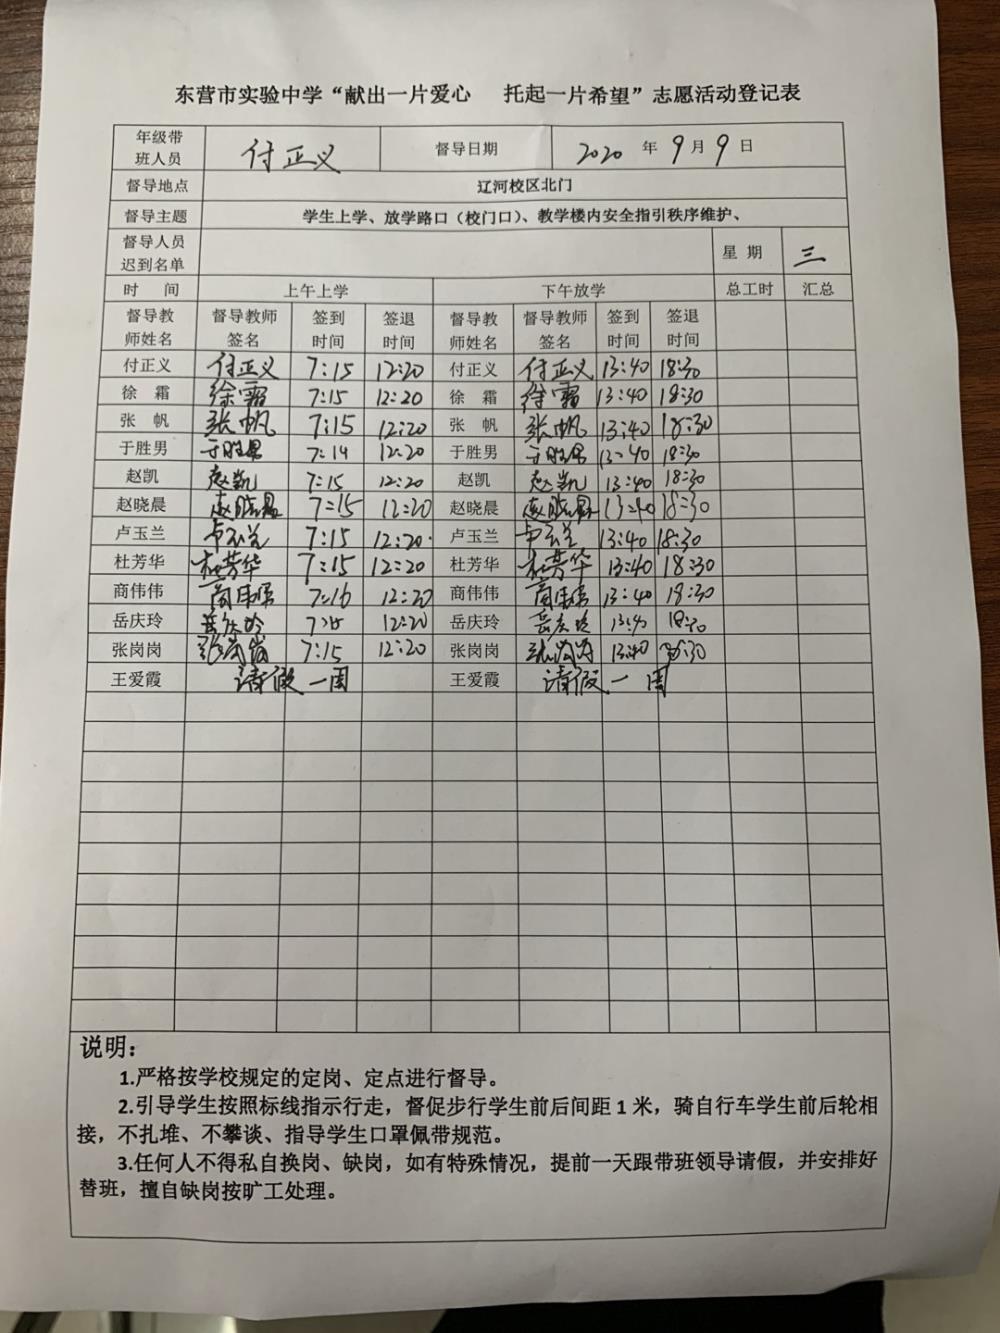 东营市实验中学“献出一片爱心 托起一片希望”志愿活动登记表
年级带班人员 付正义 督导日期 2020 年 9 月 9 日
督导地点 辽河校区北门
督导主题 学生上学、放学路口（校门口）、教学楼内安全指引秩序维护、
督导人员迟到名单 星 期 三
时 间 上午上学 下午放学 总工时 汇总
督导教师姓名 督导教师签名 签到时间 签退时间 督导教师姓名 督导教师签名 签到时间 签退时间
付正义 付正义 7:15 12:20 付正义 付正义 13:40 18:30
徐 霜 徐霜 7:15 12:20 徐 霜 徐霜 13:40 18:30
张 帆 张帆 7:15 12:20 张 帆 张帆 13:40 18:30
于胜男 于胜男 7:14 12:20 于胜男 于胜男 13:40 18:30
赵凯 赵凯 7:15 12:20 赵凯 赵凯 13:40 18:30
赵晓晨 赵晓晨 7:15 12:20 赵晓晨 赵晓晨 13:40 18:30
卢玉兰 卢玉兰 7:15 12:20 卢玉兰 卢玉兰 13:40 18:30
杜芳华 杜芳华 7:15 12:20 杜芳华 杜芳华 13:40 18:30
商伟伟 商伟伟 7:16 12:20 商伟伟 商伟伟 13:40 18:30
岳庆玲 岳庆玲 12:20 岳庆玲 岳庆玲 13:40 18:30
张岗岗 张岗岗 7:15 12:20 张岗岗 张岗岗 13:40 18:30
王爱霞 请假一周 王爱霞 请假一周
说明：
1.严格按学校规定的定岗、定点进行督导。
2.引导学生按照标线指示行走，督促步行学生前后间距 1 米，骑自行车学生前后轮相
接，不扎堆、不攀谈、指导学生口罩佩带规范。
3.任何人不得私自换岗、缺岗，如有特殊情况，提前一天跟带班领导请假，并安排好
替班，擅自缺岗按旷工处理。